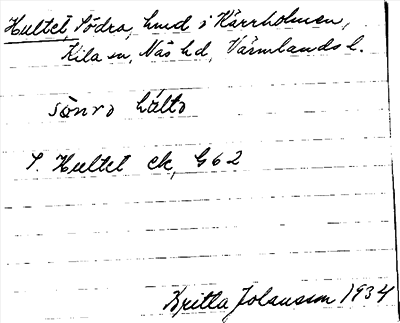 Hultet, Södra, hmd i Kärrholmen,
Kila sn, Näs hd, Värmlands l.
sönro hålto
S. Hultet ek, G62
Britta Johansson 1934